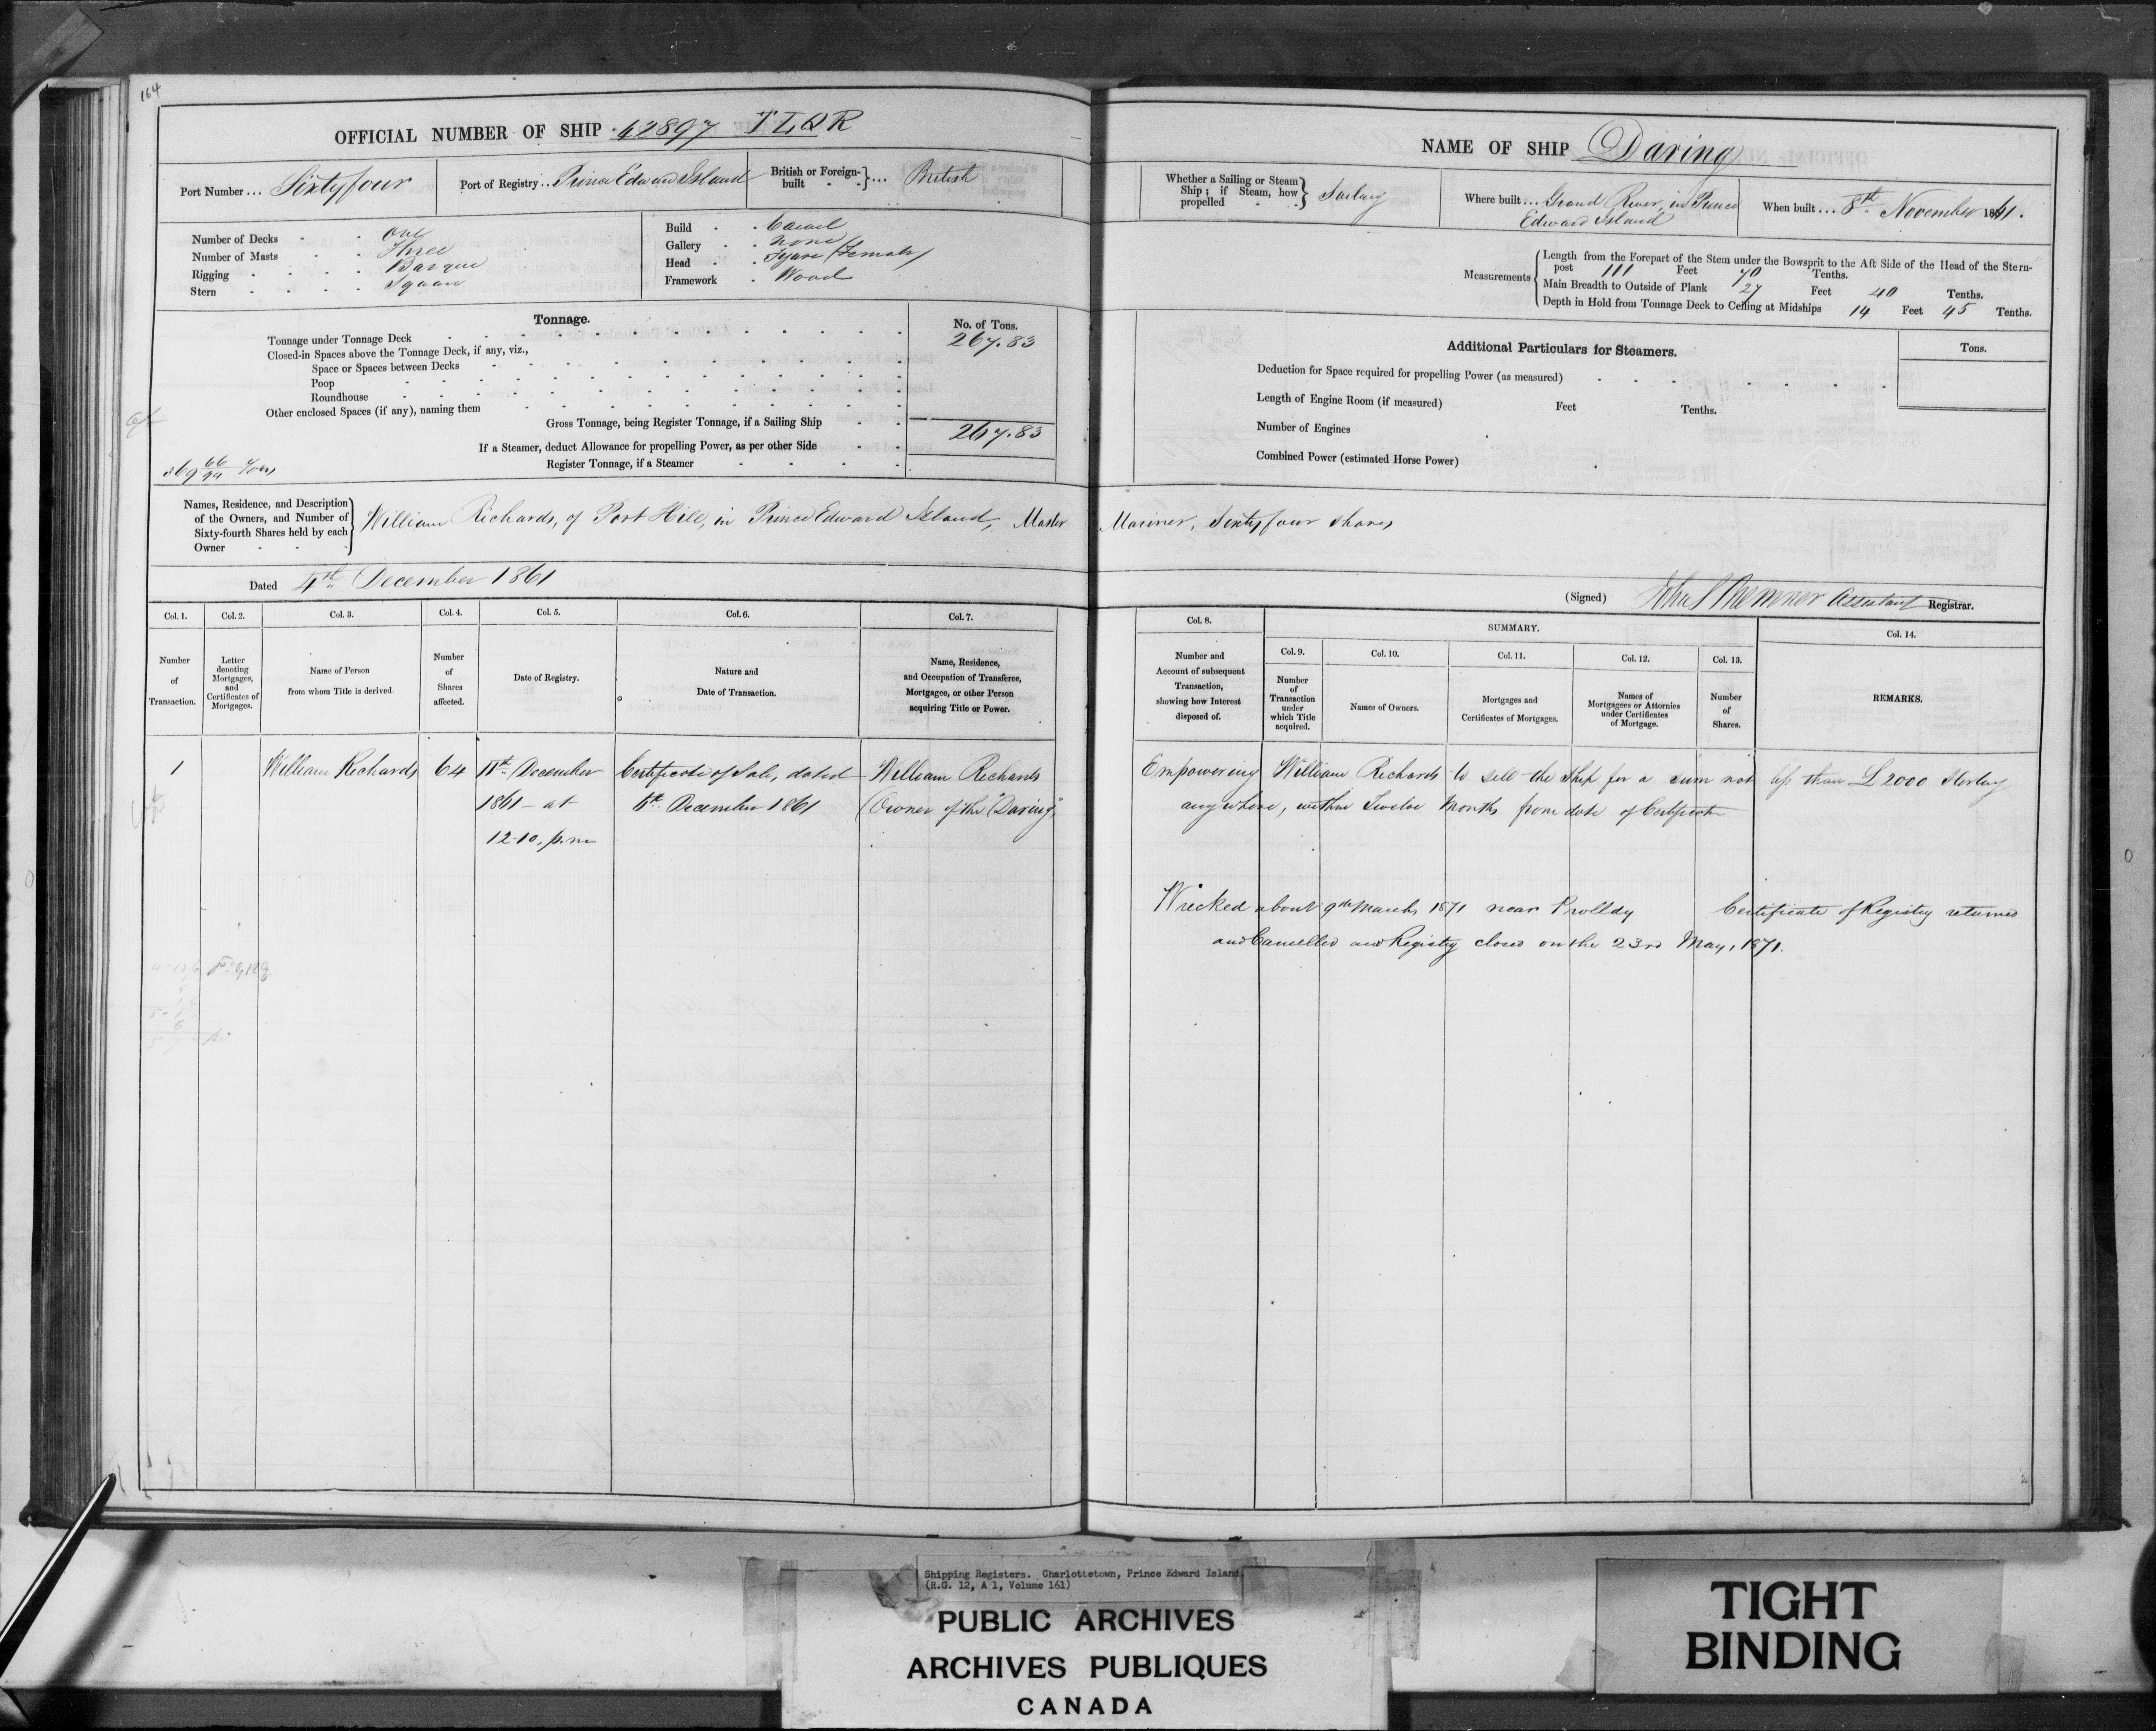 164
OFFICIAL NUMBER OF SHIP 42897 TLQR
Port Number ... Sixtyfour
Port of Registry .. Prince Edward Island
British or Foreign-built ... British
Number of Decks One
Number of Masts Three
Rigging Barque
Stern Square
Build Carvel
Gallery None
Head Figure (Female)
Framework Wood
Tonnage.
No. of Tons.
Tonnage under Tonnage Deck 267.83
Closed-in Spaces above the Tonnage Deck, if any, viz.,
Space or Spaces between Decks
Poop
Roundhouse
Other enclosed Spaces (if any), naming them
Gross Tonnage, being Register Tonnage, if a Sailing Ship 267.83
If a Steamer, deduct Allowance for propelling Power, as per other Side
Register Tonnage, if a Steamer
NAME OF SHIP Daring
Whether a Sailing or Steam Ship; if Steam, how propelled Sailing
Where built ... Grand River, in Prince
Edward Island
When built ... 8th November 1861.
Measurements
Length from the Forepart of the Stem under the Bowsprit to the Aft Side of the Head of the Stern-
post 111 Feet 70 Tenths.
Main Breadth to Outside of Plank 27 Feet 40 Tenths.
Depth in Hold from Tonnage Deck to Ceiling at Midships 14 Feet 45 Tenths.
Additional Particulars for Steamers.
Tons.
Deduction for Space required for propelling Power (as measured)
Length of Engine Room (if measured) Feet Tenths.
Number of Engines
Combined Power (estimated Horse Power)
Names, Residence, and Description
of the Owners, and Number of
Sixty-fourth Shares held by each
Owner
William Richards, of Port Hill, in Prince Edward Island, Master Mariner, Sixty four shares
Dated 4th December 1861
(Signed) Assistant Registrar.
Col. 1. Col. 2. Col. 3. Col. 4. Col. 5. Col. 6. Col. 7.
Number of Transaction.
Letter denoting Mortgages, and Certificates of Mortgages.
Name of Person from whom Title is derived.
Number of Shares affected.
Date of Registry.
Nature and Date of Transaction.
Name, Residence, and Occupation of Transferee, Mortgagee, or other Person acquiring Title or Power.
Col. 8.
Number and Account of subsequent Transaction, showing how Interest disposed of.
SUMMARY.
Col. 9. Col. 10. Col. 11. Col. 12. Col. 13.
Number of Transaction under which Title acquired.
Names of Owners.
Mortgages and Certificates of Mortgages.
Names of Mortgagees or Attornies under Certificates of Mortgage.
Number of Shares.
Col. 14.
REMARKS.
1 William Richards 64 11th December Certificate of Sale, dated William Richards
1861 - at 6th December 1861 (Owner of the "Daring")
12-10, p.m
Empowering William Richards to sell the Ship for a sum not less than £2000 Sterling
anywhere, within Twelve Months from date of Certificate
Wrecked about 9th March 1871 near Certificate of Registry returned
and Cancelled and Registry closed on the 23rd May, 1871.
Shipping Registers. Charlottetown, Prince Edward Island.
(R.G. 12, A 1, Volume 161)
PUBLIC ARCHIVES
ARCHIVES PUBLIQUES
CANADA
TIGHT
BINDING